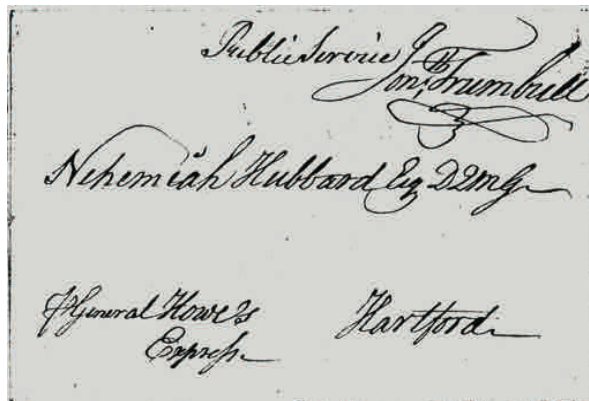 Public Service
Jonth Trumbull
Nehemiah Hubbard Esq D2MG
⅌ General Howe's
Express
Hartford